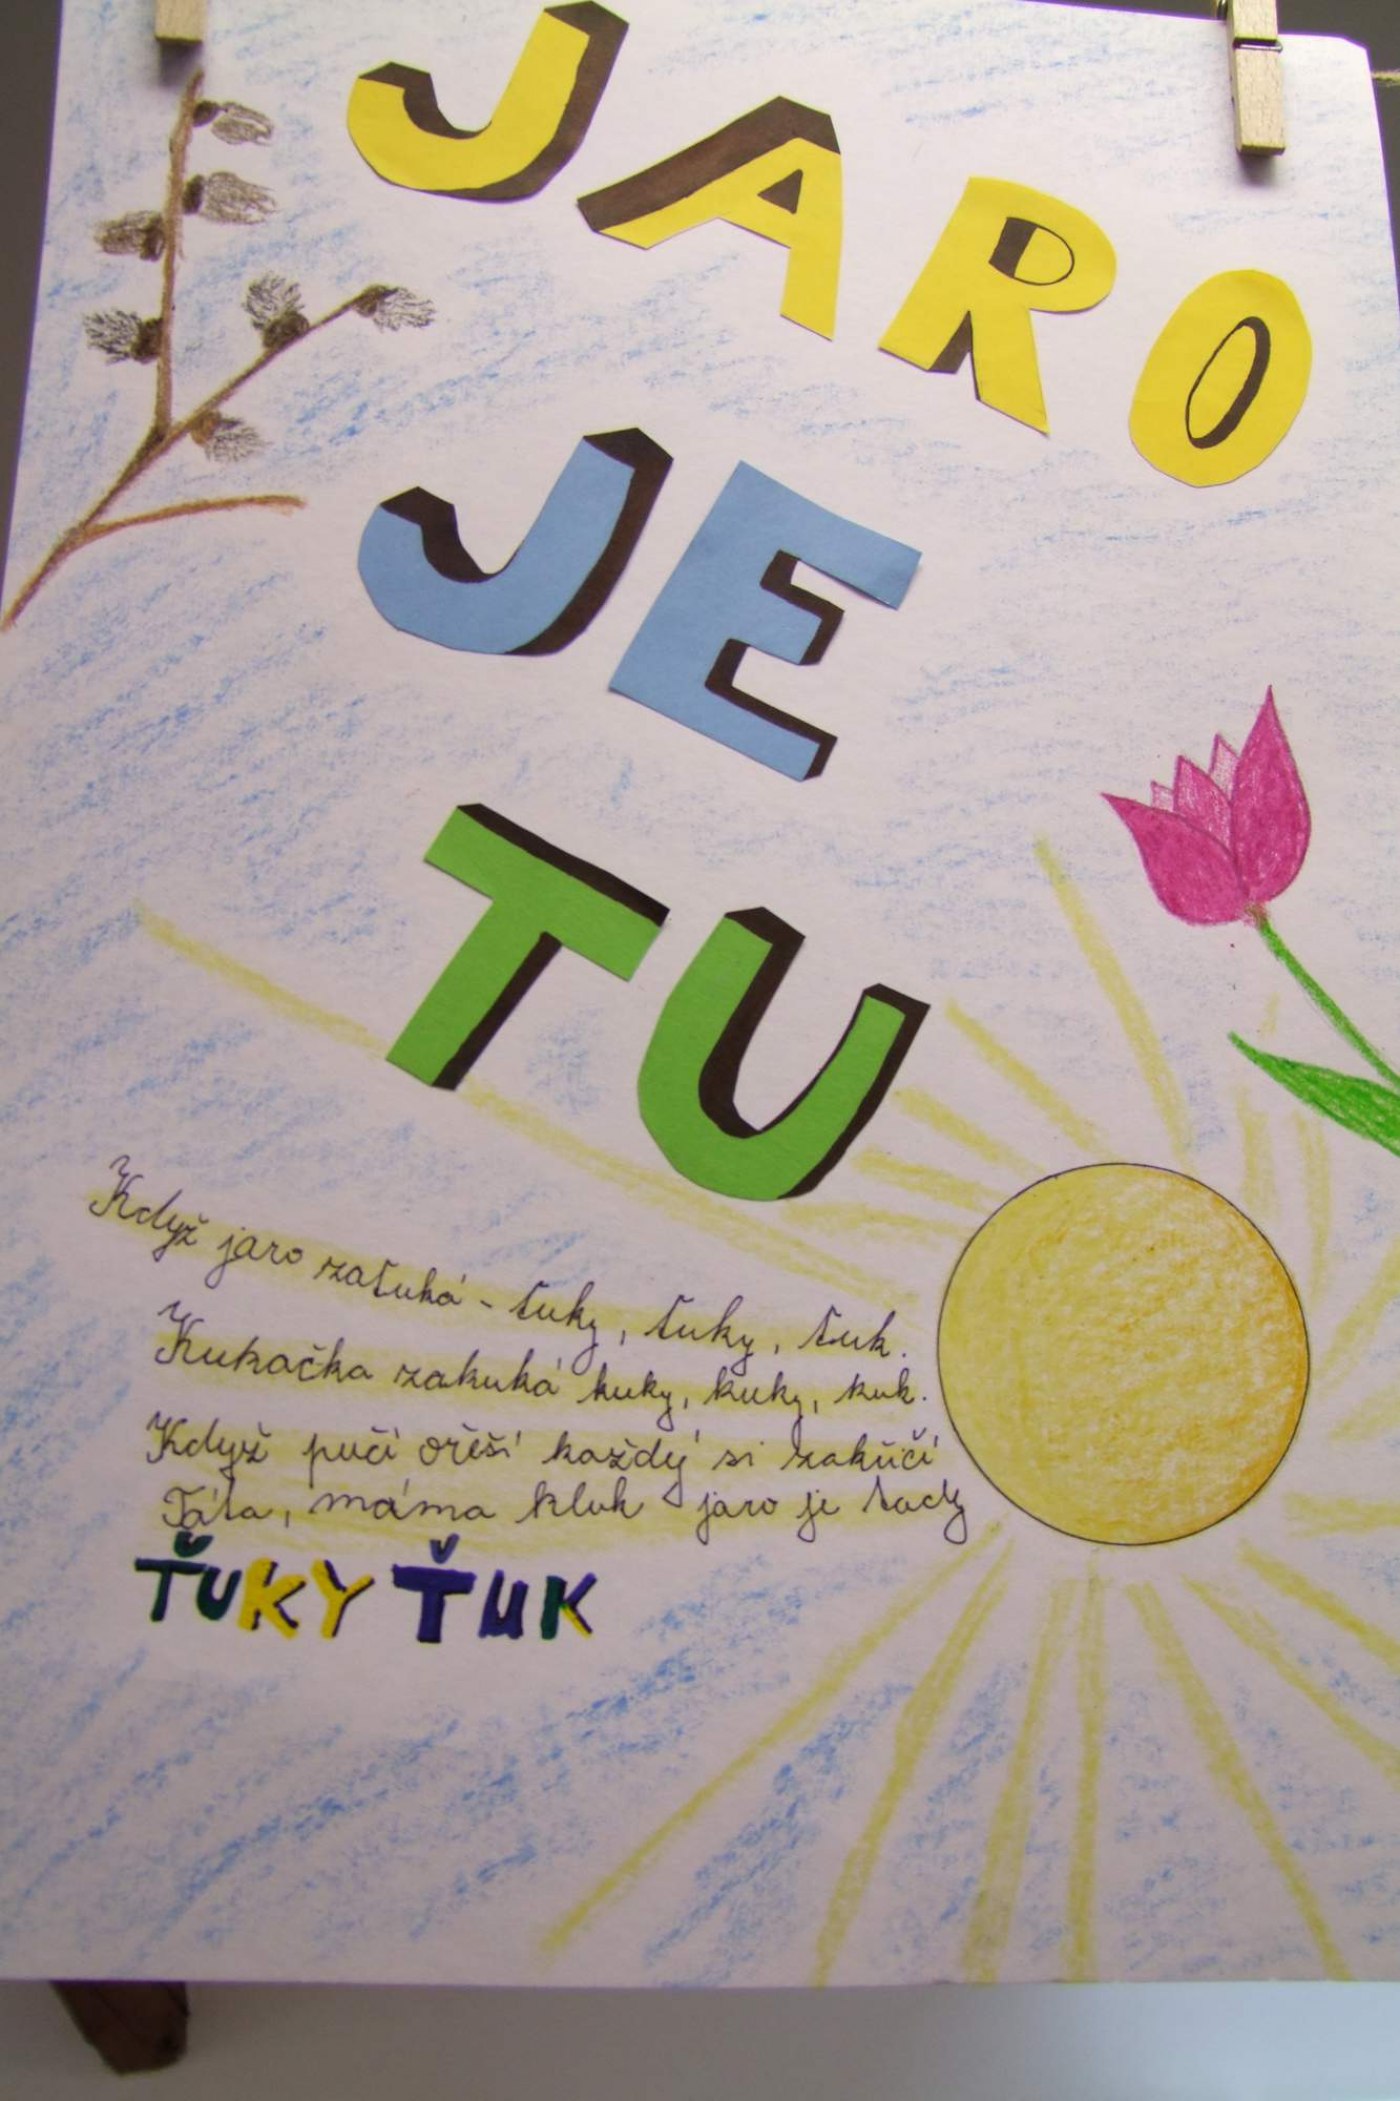 JARO
JE
TU
Když jaro zaťuká - ťuky, ťuky, ťuk.
Kukačka zakuká kuky, kuky, kuk.
Když pučí ořeší každý si zakřičí
Táta, máma kluk jaro je tady
ŤUKY ŤUK